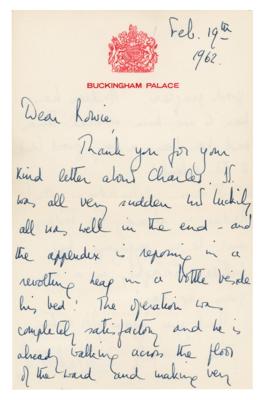 Feb. 19th
1962.
BUCKINGHAM PALACE
Dear Rowie
Thank you for your
kind letter about Charles. It
was all very sudden but luckily
all was well in the end - and
the appendix is reposing in a
revolting heap in a bottle beside
his bed! The operation was
completely satisfactory and he is
already walking across the floor
of the ward and making very